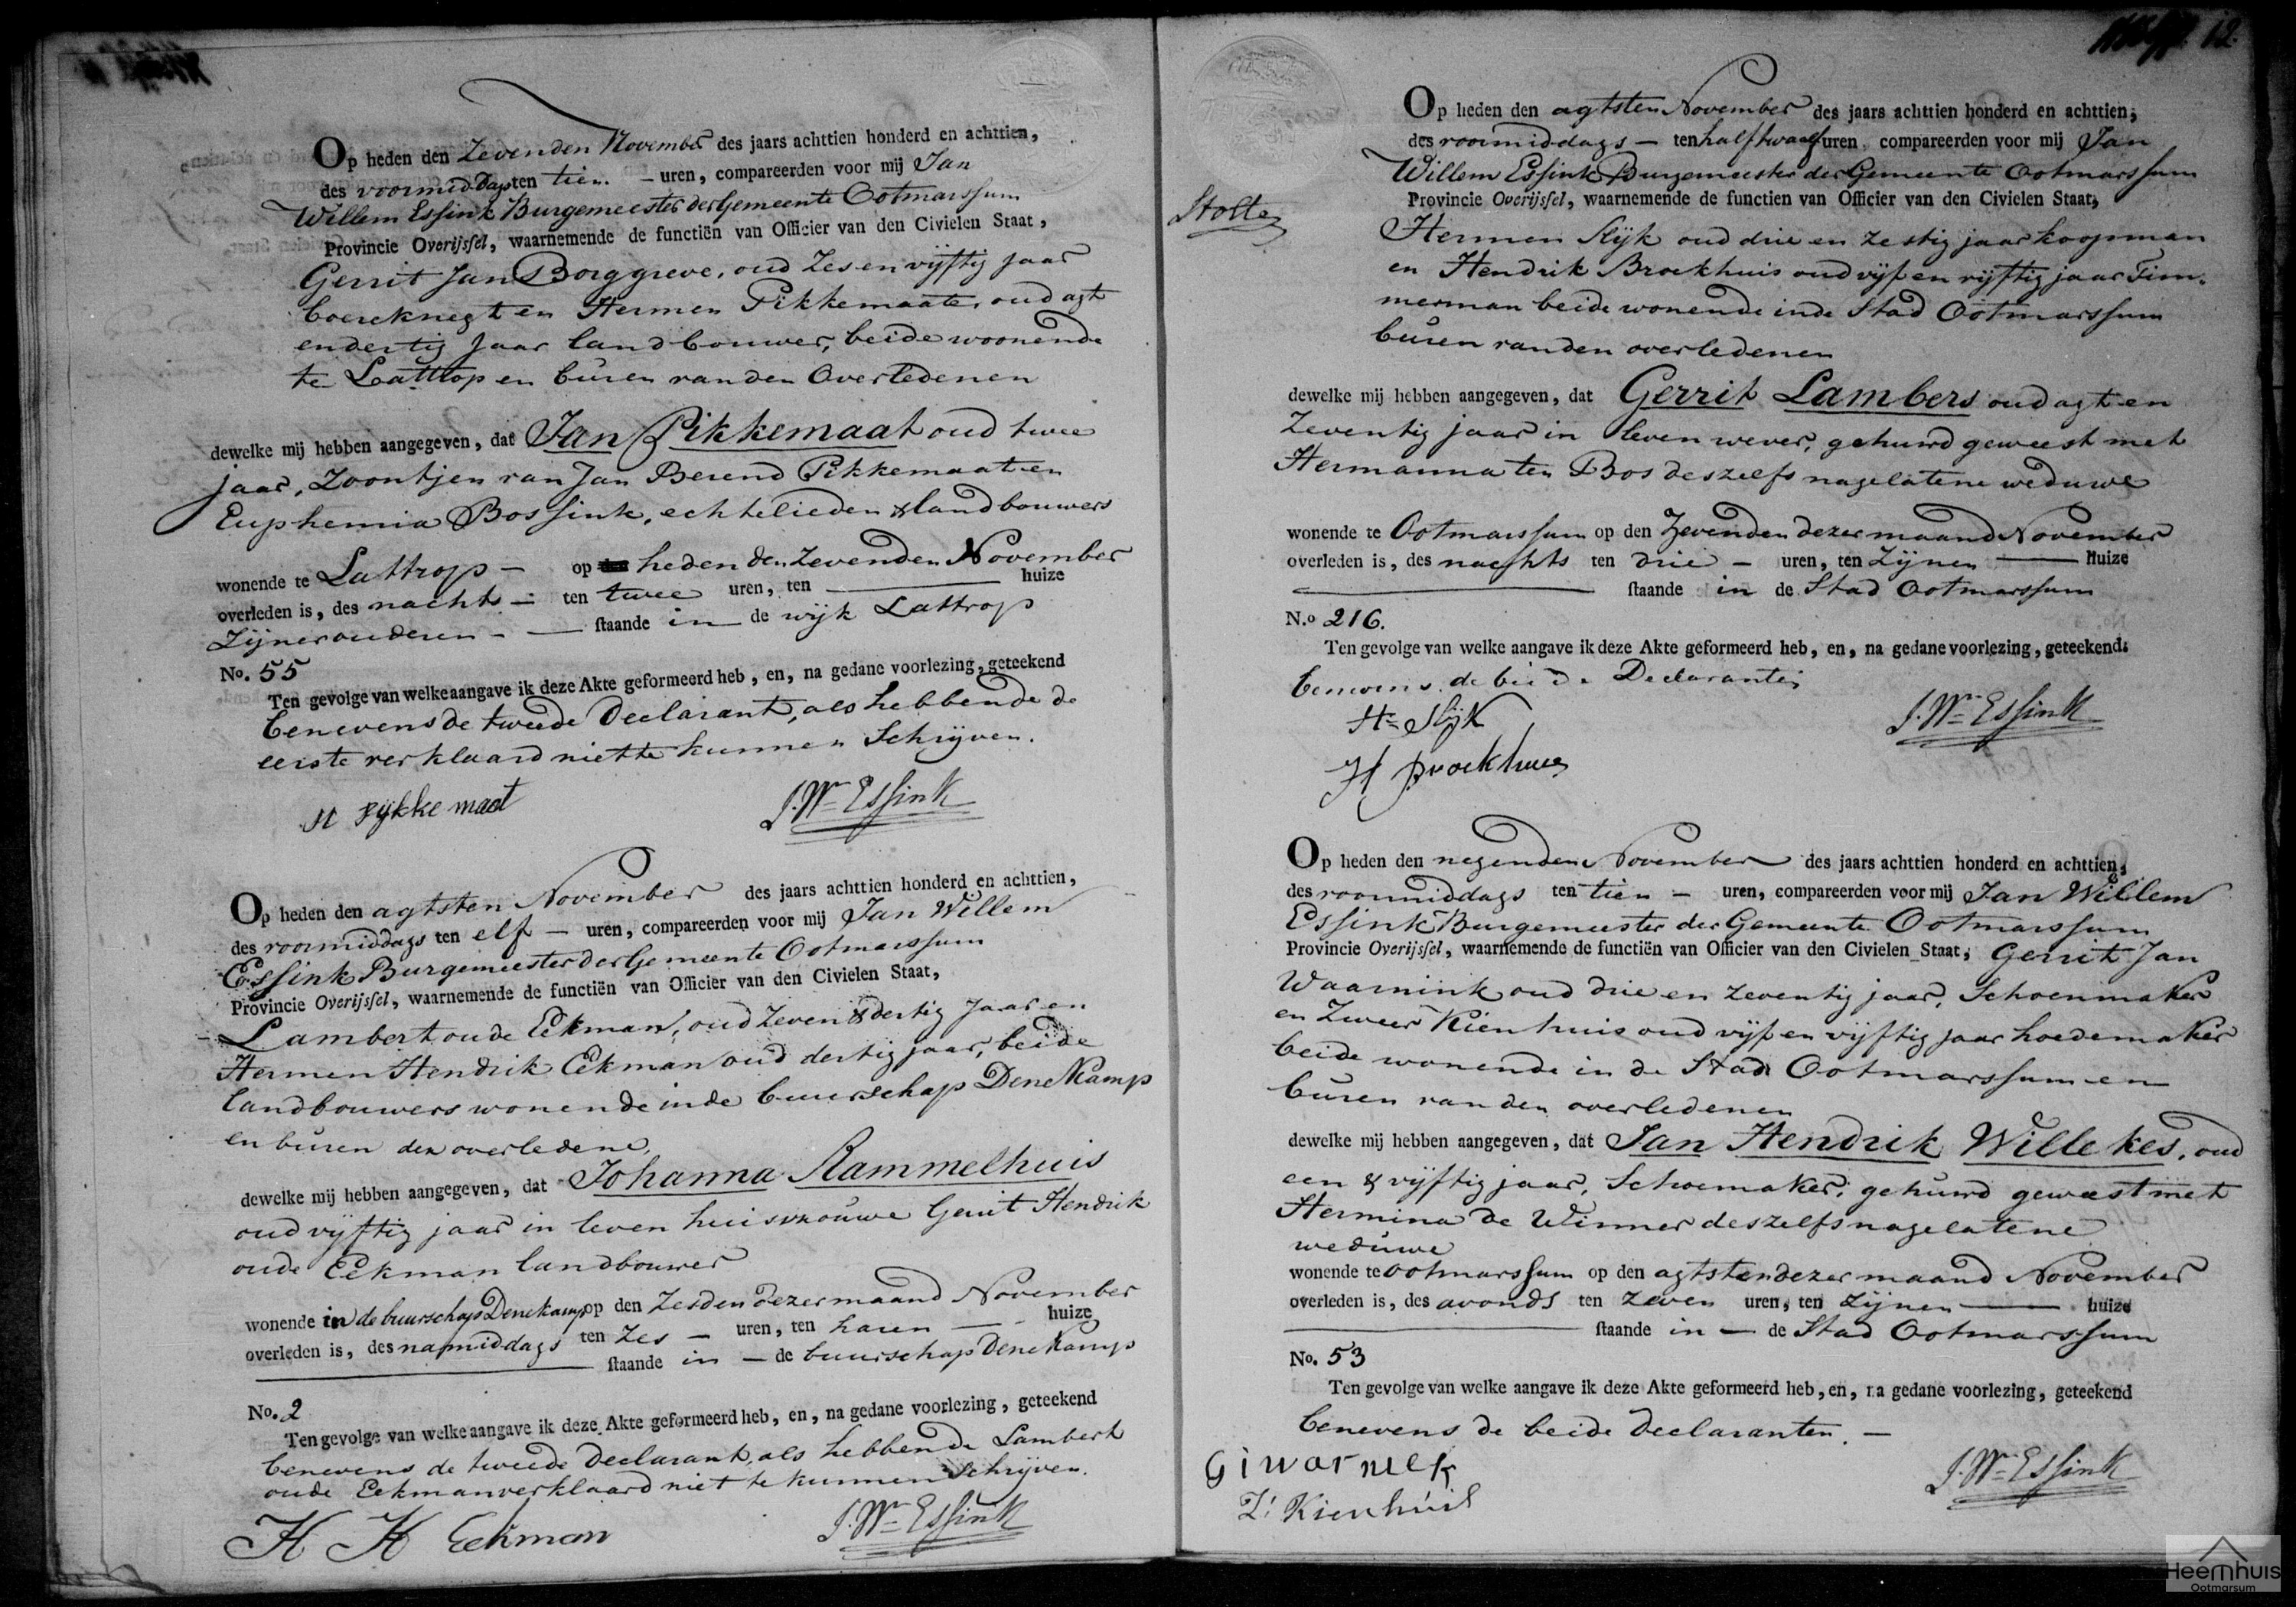 Op heden den Zevenden November des jaars achttien honderd en achttien,
des voormiddags ten tien. — uren, compareerden voor mij Jan
Willem Essink Burgemeester der Gemeente Ootmarssum
Provincie Overijssel, waarnemende de functiën van Officier van den Civielen Staat,
Gerrit Jan Borggreve, oud Zes en vijftig jaar
boereknegt en Hermen Pikkemaate, oud agt
en dertig Jaar landbouwer, beide woonende
te Lattrop en buren van den Overledenen
dewelke mij hebben aangegeven, dat Jan Pikkemaat oud twee
jaar, Zoontjen van Jan Berend Pikkemaat en
Euphemia Bossink, echtelieden & landbouwers
wonende te Lattrop — op heden den Zevenden November
overleden is, des nachts — ten twee uren, ten — huize
Zijner ouderen — staande in de wijk Lattrop
No. 55
Ten gevolge van welke aangave ik deze Akte geformeerd heb, en, na gedane voorlezing, geteekend
benevens de tweede Declarant, als hebbende de
eerste verklaard niet te kunnen Schrijven.
H Pijkkemaat
J. Wm Essink
Op heden den agtsten November des jaars achttien honderd en achttien,
des voormiddags ten elf — uren, compareerden voor mij Jan Willem
Essink Burgemeester der Gemeente Ootmarssum
Provincie Overijssel, waarnemende de functiën van Officier van den Civielen Staat,
Lambert oude Eekman, oud Zeven & dertig Jaar en
Hermen Hendrik Eekman oud dertig jaar, beide
landbouwers wonende in de buurschap Denekamp
en buren der overledene,
dewelke mij hebben aangegeven, dat Johanna Rammelhuis
oud vijftig jaar in leven huisvrouwe Gerrit Hendrik
oude Eekman landbouwer
wonende in de buurschap Denekamp op den Zesden dezer maand November
overleden is, des namiddags ten Zes — uren, ten haren — huize
staande in — de buurschap Denekamp
No. 2
Ten gevolge van welke aangave ik deze Akte geformeerd heb, en, na gedane voorlezing, geteekend
benevens de tweede Declarant, als hebbende Lambert
oude Eekman verklaard niet te kunnen Schrijven.
H H Eekman
J. Wm Essink
12.
Op heden den agtsten November des jaars achttien honderd en achttien,
des voormiddags — ten half twaalf uren, compareerden voor mij Jan
Willem Essink Burgemeester der Gemeente Ootmarssum
Provincie Overijssel, waarnemende de functien van Officier van den Civielen Staat,
Stolte
Hermen Slijk oud drie en zestig jaar koopman
en Hendrik Broekhuis oud vijf en vijftig jaar Tim-
merman beide wonende in de Stad Ootmarssum
buren van den overledenen
dewelke mij hebben aangegeven, dat Gerrit Lambers oud agt en
Zeventig jaar in leven wever, gehuwd geweest met
Hermanna ten Bos deszelfs nagelatene weduwe
wonende te Ootmarssum op den Zevenden dezer maand November
overleden is, des nachts ten drie — uren, ten Zijnen — huize
staande in de Stad Ootmarssum
N.o 216.
Ten gevolge van welke aangave ik deze Akte geformeerd heb, en, na gedane voorlezing, geteekend
benevens de beide Declaranten
Hs Slijk
J. Wm Essink
H Broekhuis
Op heden den negenden November des jaars achttien honderd en achttien,
des voormiddags ten tien — uren, compareerden voor mij Jan Willem
Essink Burgemeester der Gemeente Ootmarssum
Provincie Overijssel, waarnemende de functiën van Officier van den Civielen Staat, Gerrit Jan
Waarnink oud drie en zeventig jaar, Schoenmaker
en Zweer Kienhuis oud vijf en vijftig jaar hoedemaker
beide wonende in de Stad Ootmarssum en
buren van den overledenen
dewelke mij hebben aangegeven, dat Jan Hendrik Willekes, oud
een & vijftig jaar, Schoemaker, gehuwd geweest met
Hermina de Winner deszelfs nagelatene
weduwe
wonende te ootmarssum op den agtsten dezer maand November
overleden is, des avonds ten zeven uren, ten zijnen — huize
staande in — de Stad Ootmarssum
No. 53
Ten gevolge van welke aangave ik deze Akte geformeerd heb, en, na gedane voorlezing, geteekend
benevens de beide declaranten. —
J. Wm Essink
Z: Kienhuis
Heemhuis
Ootmarsum